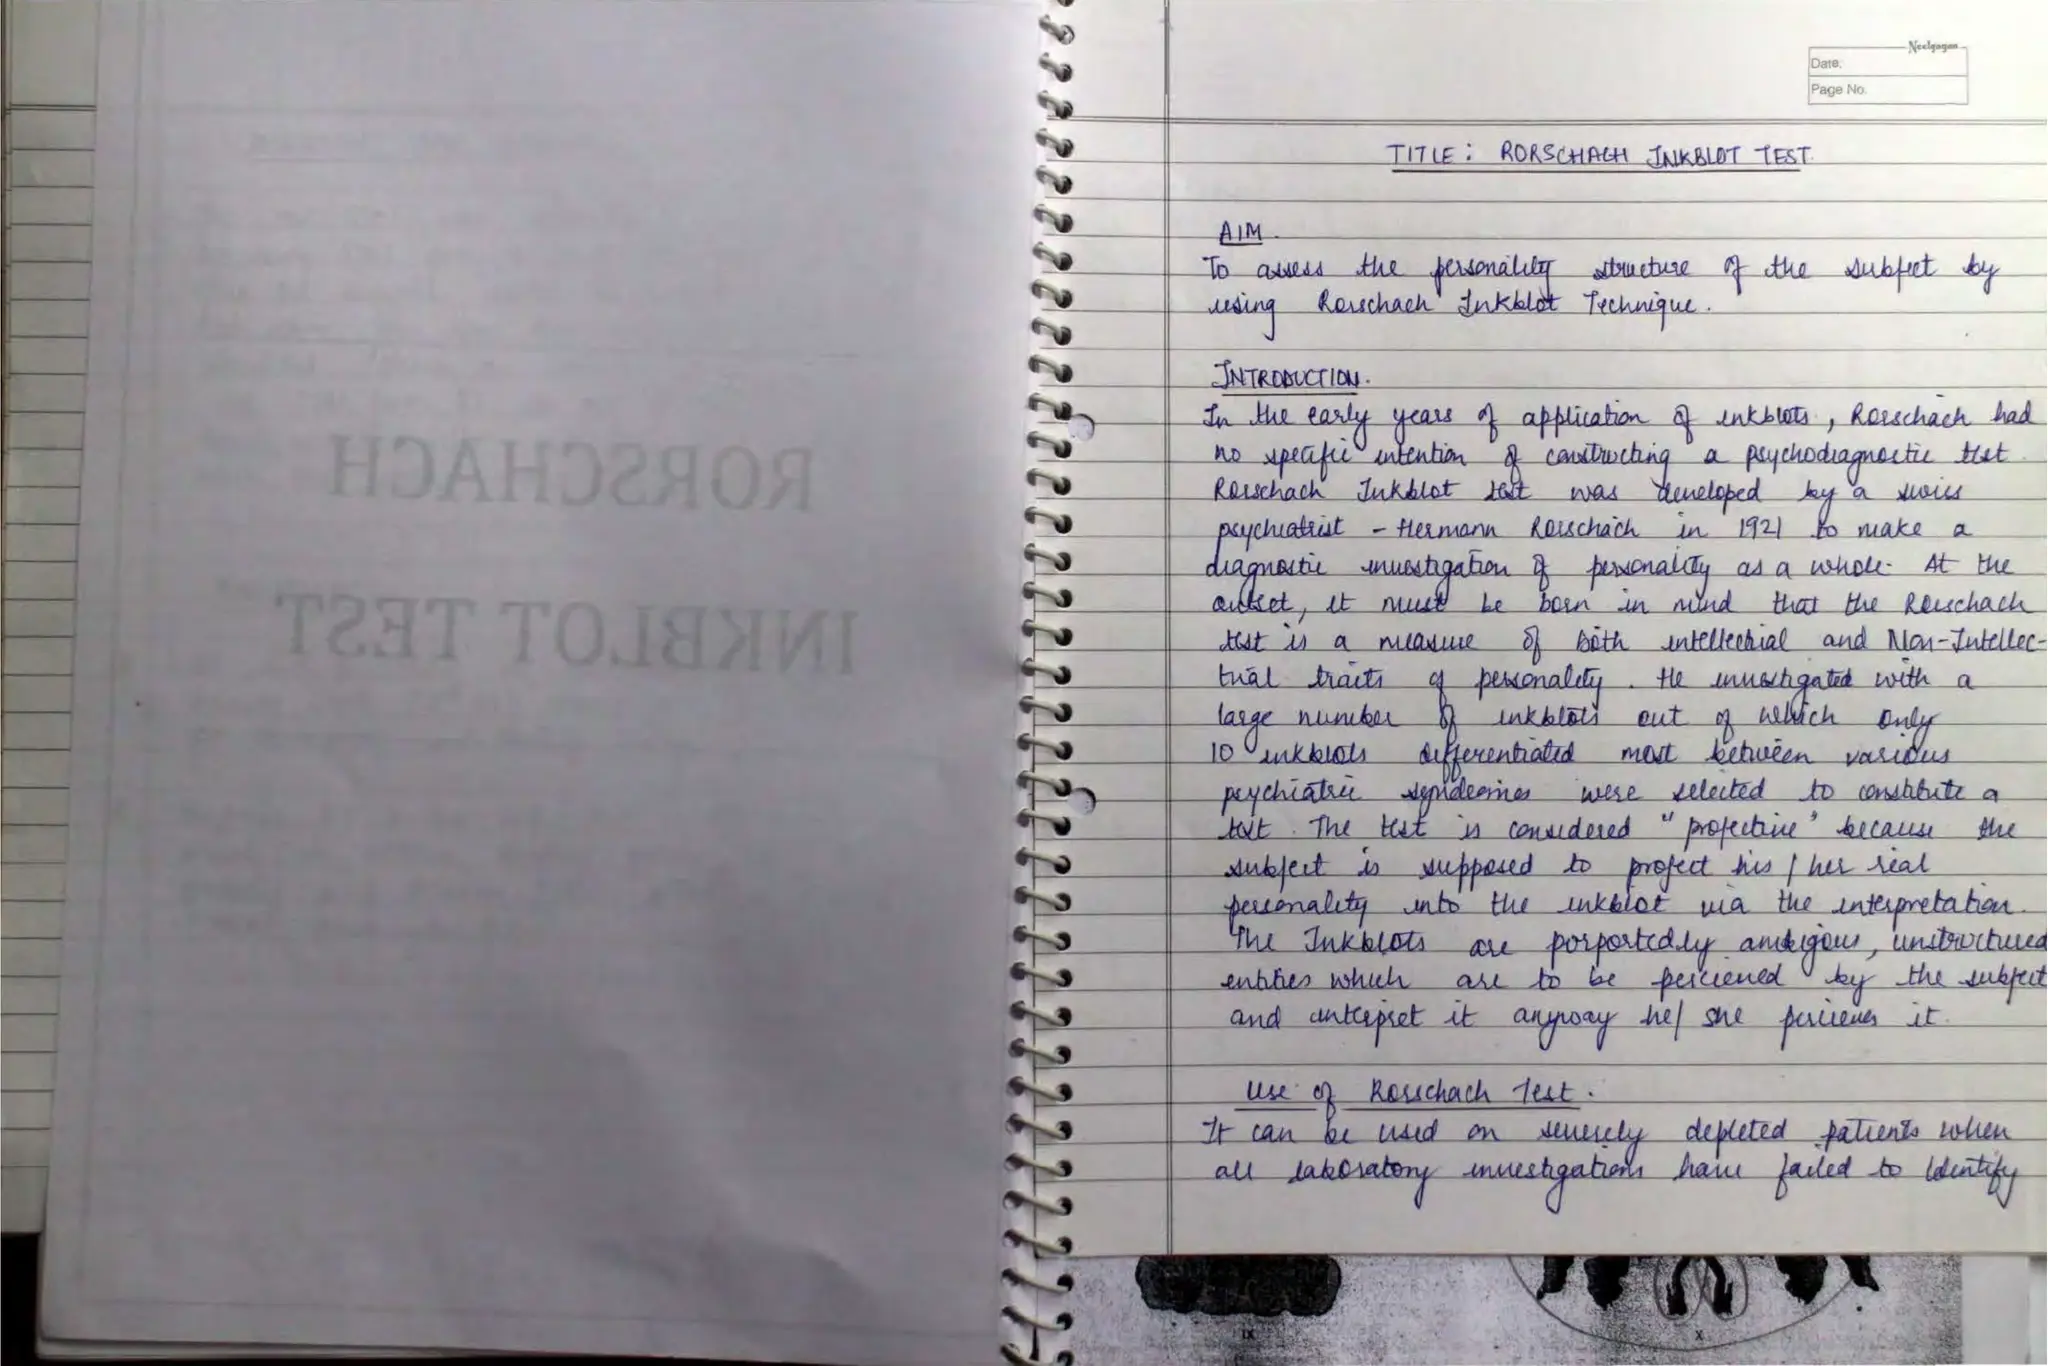 RORSCHACH
INKBLOT TEST
Neelgagan
Date:
Page No.
TITLE : RORSCHACH INKBLOT TEST.
AIM.
To assess the personality structure of the subject by
using Rorschach Inkblot Technique.
INTRODUCTION.
In the early years of application of inkblots, Rorschach had
no specific intention of constructing a psychodiagnostic test.
Rorschach Inkblot test was developed by a swiss
psychiatrist - Hermann Rorschach in 1921 to make a
diagnostic investigation of personality as a whole. At the
outset, it must be born in mind that the Rorschach
test is a measure of both intellectual and Non-Intellec-
tual traits of personality. He investigated with a
large number of inkblots out of which only
10 inkblots differentiated most between various
psychiatric syndromes were selected to constitute a
test. The test is considered "projective" because the
subject is supposed to project his / her real
personality into the inkblot via the interpretation.
The Inkblots are porportedly ambigous, unstructured
entities which are to be percieved by the subject
and interpret it anyway he/ she percieves it.
Use of Rorschach Test.
It can be used on severely depleted patients when
all laboratory investigations have failed to Identify
IX
X